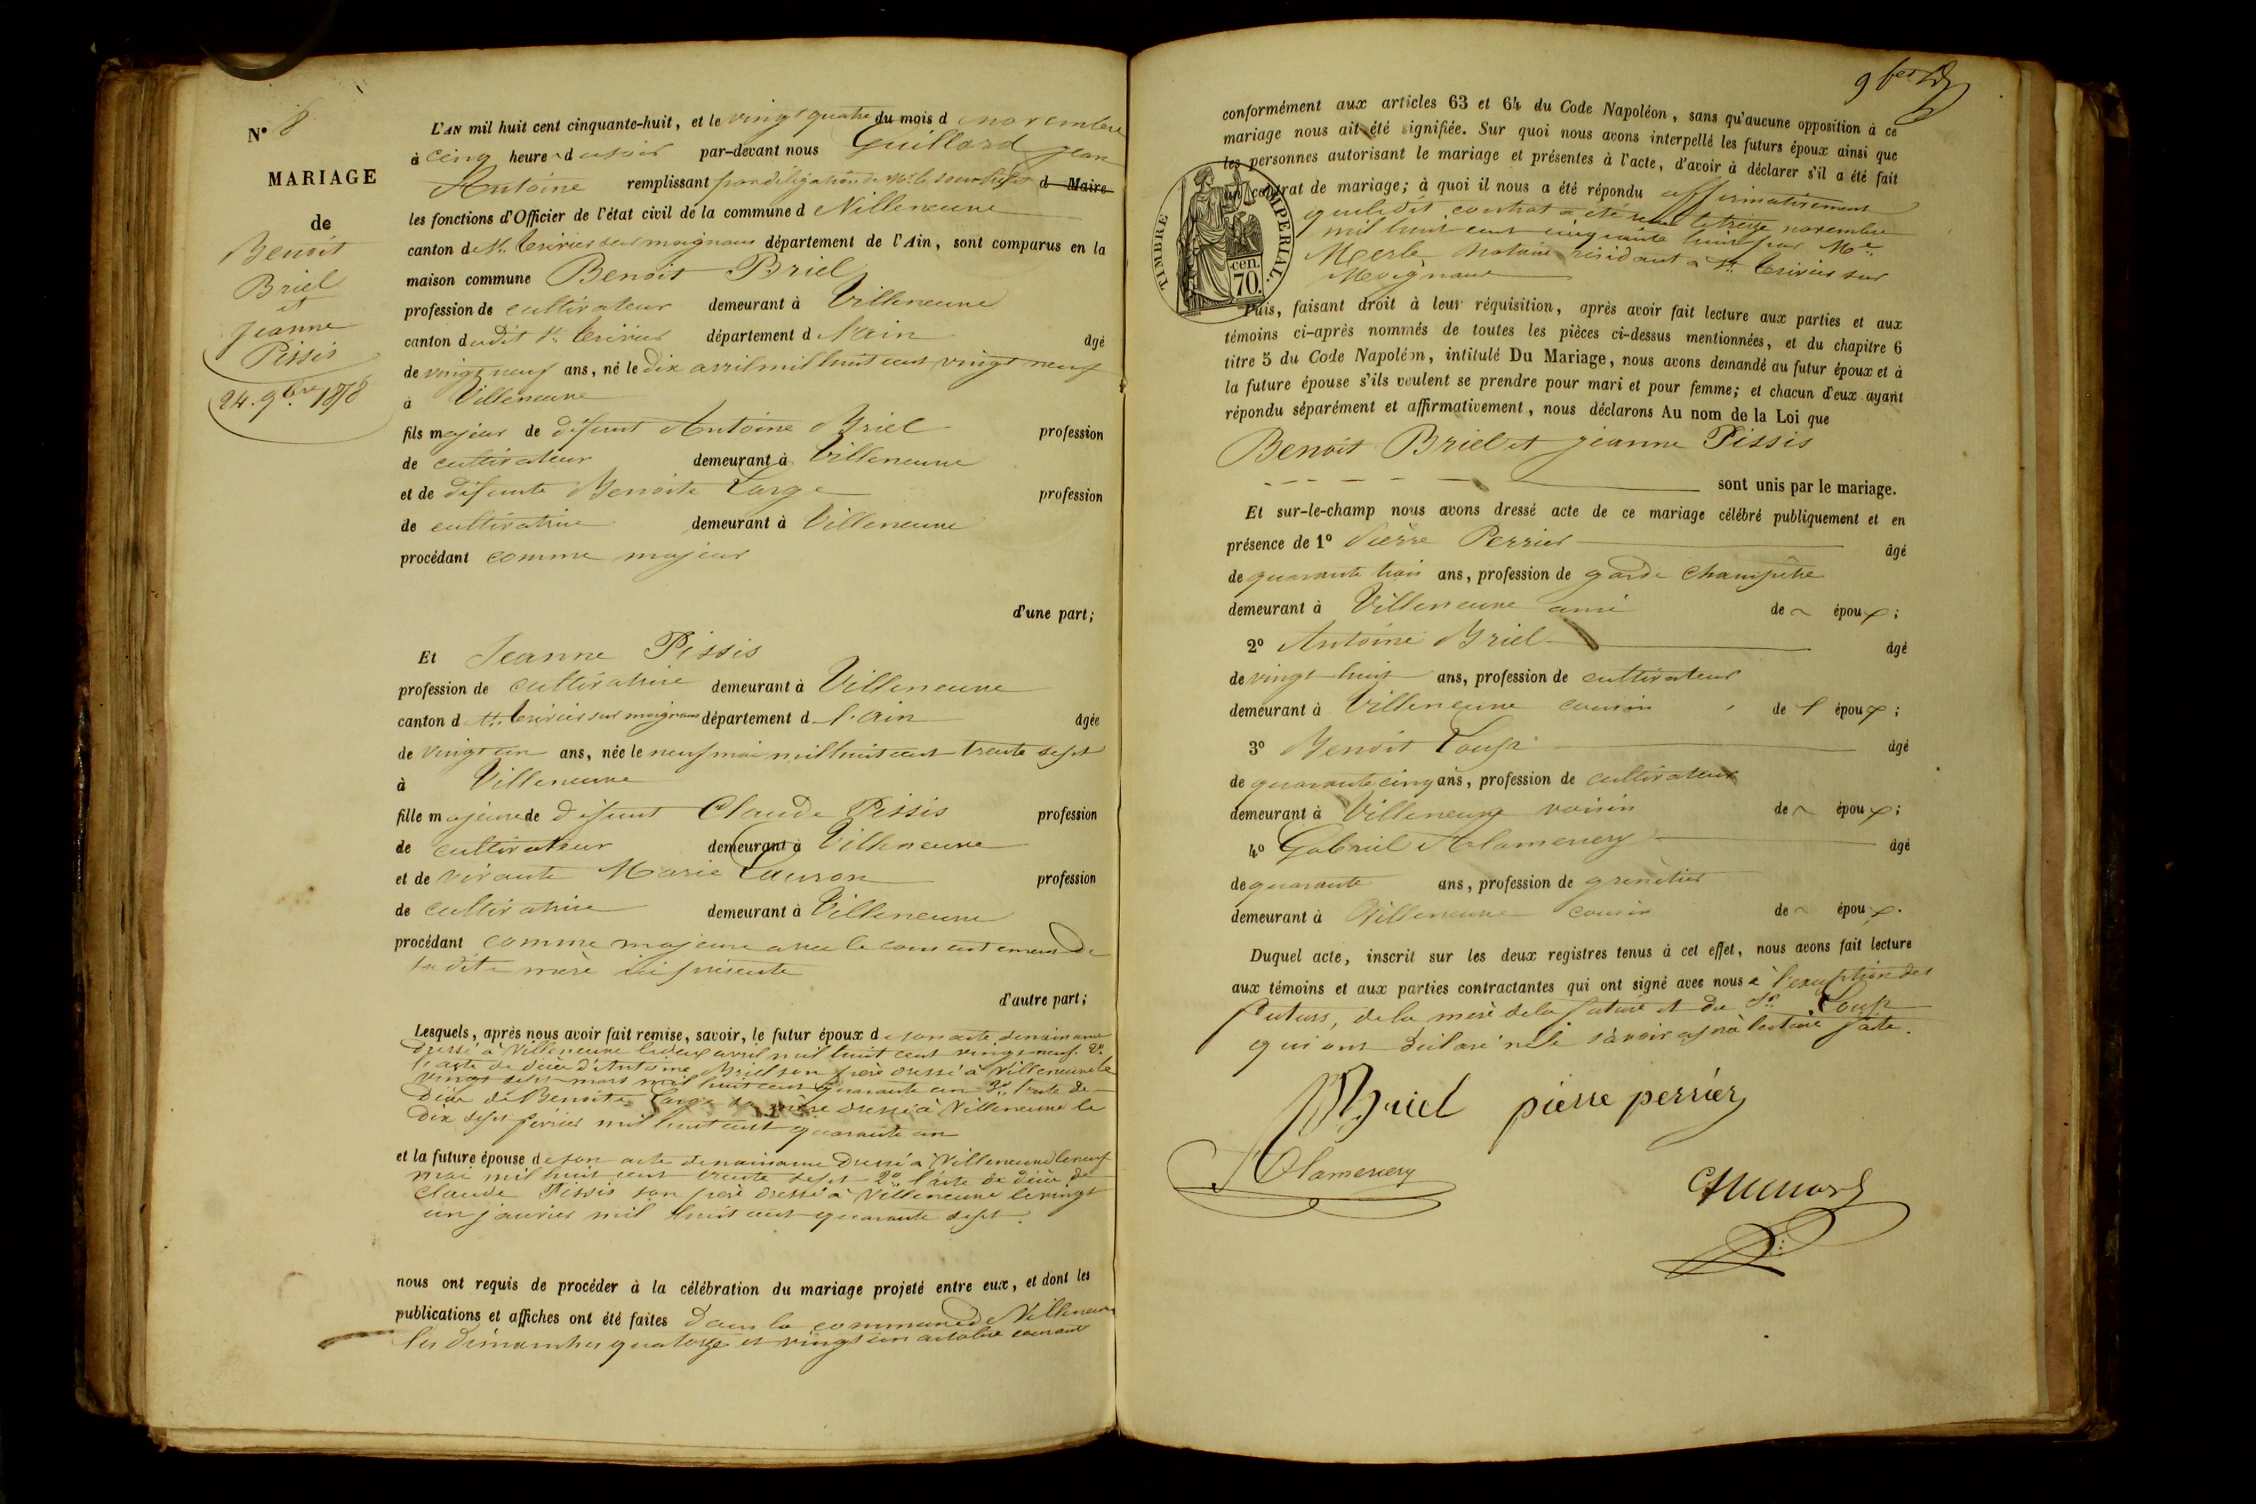 N° 8
MARIAGE
de
Benoit
Briel
et
Jeanne
Pissis
24. 9bre 1858
L'AN mil huit cent cinquante-huit, et le vingt quatre du mois d novembre
à cinq heure du soir par-devant nous Guillard Jean
Antoine remplissant par délégation de Mr le sous préfet d Maire
les fonctions d'Officier de l'état civil de la commune d Villeneuve
canton de St. Trivier sur moignans département de l'Ain, sont comparus en la
maison commune Benoit Briel
profession de cultivateur demeurant à Villeneuve
canton dudit St Trivier département d l'ain âgé
de vingt neuf ans, né le dix avril mil huit cent vingt neuf
à Villeneuve
fils majeur de défunt Antoine Briel profession
de cultivateur demeurant à Villeneuve
et de défunte Benoite Large profession
de cultivatrice demeurant à Villeneuve
procédant comme majeur
d'une part;
Et Jeanne Pissis
profession de cultivatrice demeurant à Villeneuve
canton d St. Trivier sur moignans département d l'ain âgée
de vingt un ans, née le neuf mai mil huit cent trente sept
à Villeneuve
fille majeure de défunt Claude Pissis profession
de cultivateur demeurant à Villeneuve
et de vivante Marie Lauron profession
de cultivatrice demeurant à Villeneuve
procédant comme majeure avec le consentement de
sa dite mère ici présente
d'autre part;
Lesquels, après nous avoir fait remise, savoir, le futur époux d e son acte de naissance
dressé à Villeneuve le dix avril mil huit cent vingt neuf. 2°.
l'acte de décès d'Antoine Briel son père dressé à Villeneuve le
vingt sept mars mil huit cent quarante un 3°. l'acte de
décès de Benoite Large sa mère dressé à Villeneuve le
dix sept février mil huit cent quarante un
et la future épouse d e son acte de naissance dressé à Villeneuve le neuf
mai mil huit cent trente sept 2°. l'acte de décès de
Claude Pissis son père dressé à Villeneuve le vingt
un janvier mil huit cent quarante sept.
nous ont requis de procéder à la célébration du mariage projeté entre eux, et dont les
publications et affiches ont été faites dans la commune de Villeneuve
les dimanches quatorze et vingt un courant
9bre
conformément aux articles 63 et 64 du Code Napoléon, sans qu'aucune opposition à ce
mariage nous ait été signifiée. Sur quoi nous avons interpellé les futurs époux ainsi que
les personnes autorisant le mariage et présentes à l'acte, d'avoir à déclarer s'il a été fait
un contrat de mariage; à quoi il nous a été répondu affirmativement
que le dit contrat a été reçu le treize novembre
mil huit cent cinquante huit par Me
Merle Notaire résidant à St. Trivier sur
Moignans
TIMBRE IMPERIAL.
cen.
70.
Puis, faisant droit à leur réquisition, après avoir fait lecture aux parties et aux
témoins ci-après nommés de toutes les pièces ci-dessus mentionnées, et du chapitre 6
titre 5 du Code Napoléon, intitulé Du Mariage, nous avons demandé au futur époux et à
la future épouse s'ils veulent se prendre pour mari et pour femme; et chacun d'eux ayant
répondu séparément et affirmativement, nous déclarons Au nom de la Loi que
Benoit Briel et Jeanne Pissis
sont unis par le mariage.
Et sur-le-champ nous avons dressé acte de ce mariage célébré publiquement et en
présence de 1° Pierre Perrier âgé
de quarante trois ans, profession de garde Champêtre
demeurant à Villeneuve ami de épou x;
2° Antoine Briel âgé
de vingt huit ans, profession de cultivateur
demeurant à Villeneuve cousin de l épou x;
3° Benoit Loup âgé
de quarante cinq ans, profession de cultivateur
demeurant à Villeneuve voisin de épou x;
4° Gabriel Alamercery âgé
de quarante ans, profession de grenetier
demeurant à Villeneuve cousin de épou x.
Duquel acte, inscrit sur les deux registres tenus à cet effet, nous avons fait lecture
aux témoins et aux parties contractantes qui ont signé avec nous à l'exception des
futurs, de la mère de la future et du Sr. Loup
qui ont déclaré ne le savoir après lecture faite.
Briel pierre perrier
Alamercery